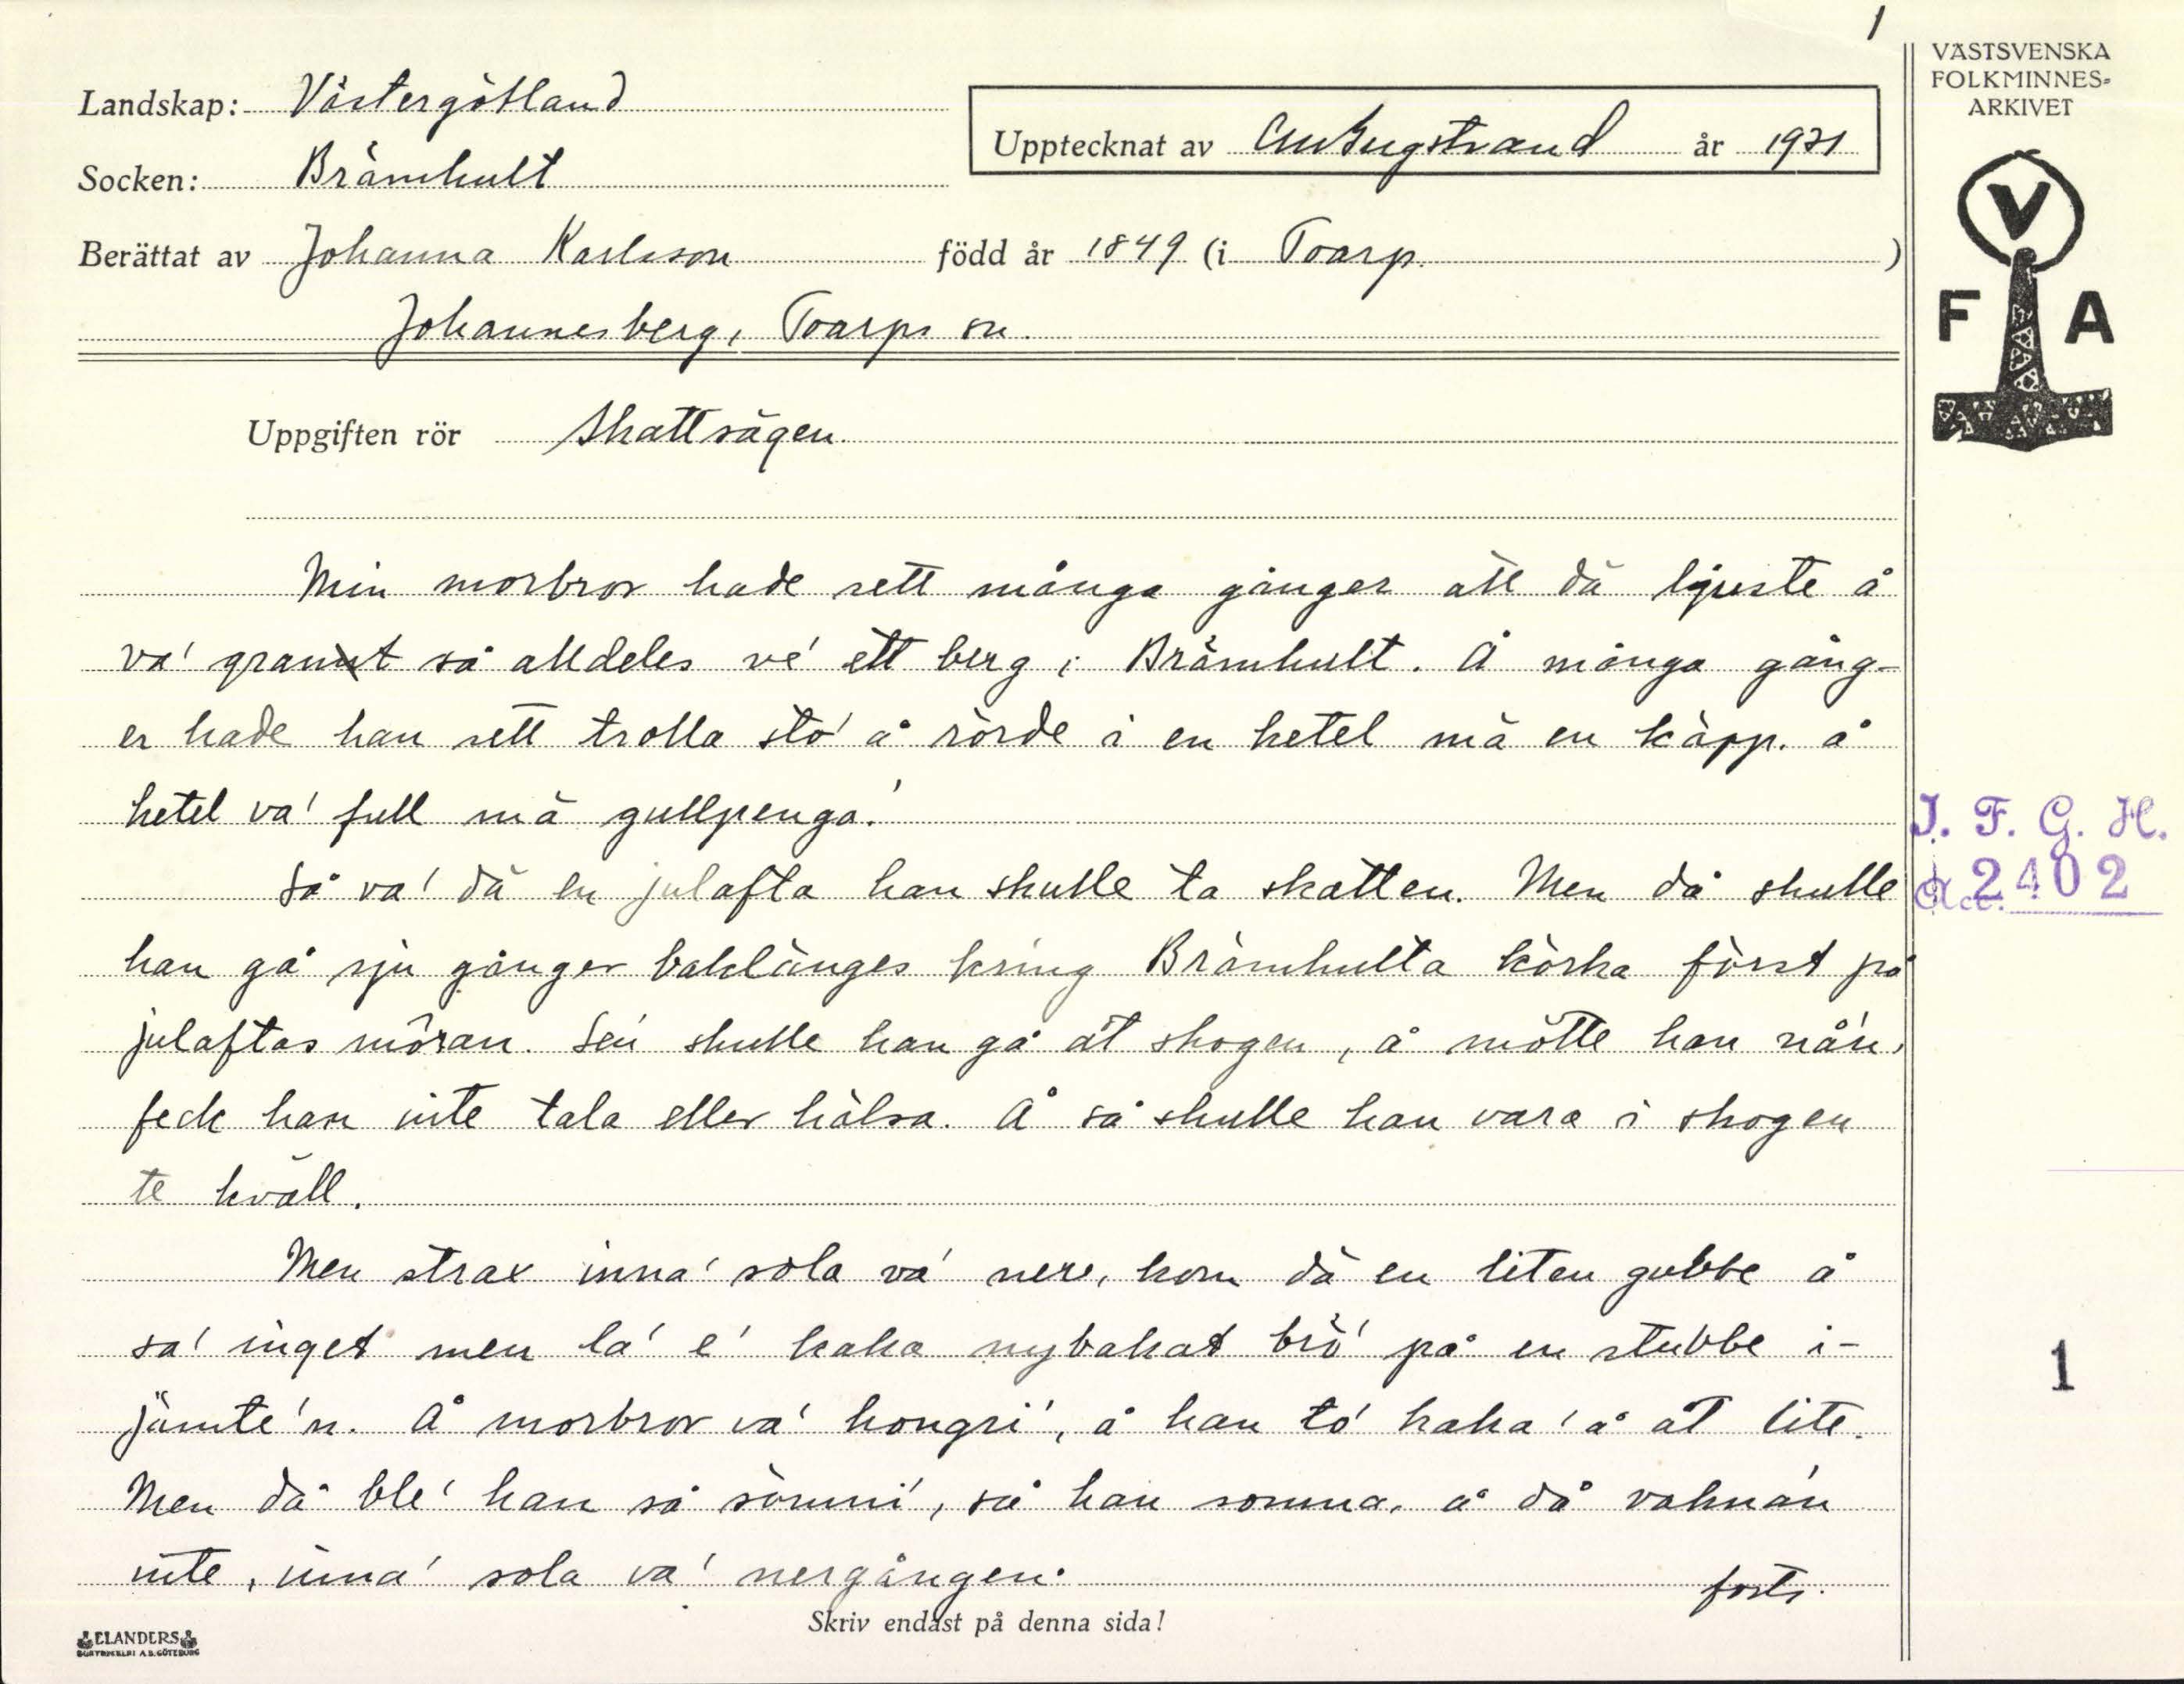 1
Landskap: Västergötland
Socken: Brämhult
Upptecknat av år 1931
Berättat av Johanna Karlsson född år 1849 (i Toarp. )
Johannesberg, Toarps sn.
Uppgiften rör Skattsägen.
Min morbror hade sett många gånger att dä ljuste å
va' grant så alldeles ve' ett berg i Brämhult. Å många gång-
er hade han sett trolla sto' å rörde i en ketel mä en käpp. å
ketel va' full mä gullpenga'.
Så va' dä en julafta han skulle ta skatten. Men då skulle
han gå sju gånger baklänges kring Brämhulta körka först på
julaftas môran. Sen skulle han gå åt skogen, å mötte han nå'n,
feck han inte tala eller hälsa. Å så skulle han vara i skogen
te kväll.
Men strax inna' sola va' nere, kom dä en liten gubbe å
sa' inget men la' e' kaka nybakat brö' på en stubbe i-
jämte'n. Å morbror va' hongri', å han to' kaka' å åt lite.
Men då ble' han så sömni', så han somna, å då vakna'n
inte, inna' sola va' nergången.
forts.
Skriv endast på denna sida!
ELANDERS
BOKTRYCKERI A.B. GÖTEBORG
VÄSTSVENSKA
FOLKMINNES-
ARKIVET
V
F A
I. F. G. H.
Acc. 2402
1